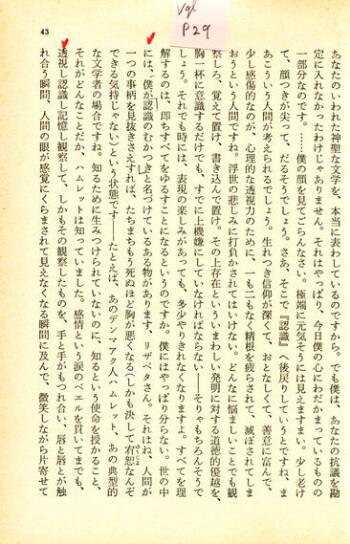 Vgl
P29
43
あなたのいわれた神聖な文学を、本当に表わしているのですから。でも僕は、あなたの抗議を勘
定に入れなかったわけじゃありません。それはやっぱり、今日僕の心にわだかまっているものの
一部分なのです。……僕の顔を見てごらんなさい。極端に元気そうには見えますまい。少し老け
て、顔つきが尖って、だるそうでしょう。さあ、そこで『認識』へ後戻りしていうとですね、ま
あこういう人間が考えられるでしょう。生れつき信仰が深くて、おとなしくて、善意に富んで、
少し感傷的なのが、心理的な透視力のために、一も二もなく精根を疲らされて、滅ぼされてしま
おうという人間ですね。浮世の悲しみに打負かされてはいけない。どんなに悩ましいことでも観
察しろ、覚えて置け、書き込んで置け。その上存在といういまわしい発明に対する道徳的優越を、
胸一杯に意識するだけでも、すでに上機嫌にしていなければならない――そりゃもちろんそうで
しょう。それでも時には、表現の楽しみがあっても、多少やりきれなくなりますよ。すべてを理
解するのは、即ちすべてをゆるすことになるというのですか。僕にはやっぱり分らない。世の中
には、僕が認識のむかつきと名づけているある物があります、リザベタさん。それはね、人間が
一つの事柄を見抜きさえすれば、たちまちもう死ぬほど胸が悪くなる(しかも決して宥恕なんぞ
できる気持じゃない)という状態です!――たとえば、あのデンマアク人ハムレット、あの典型的
な文学者の場合ですね。知るために生みつけられていないのに、知るという使命を授かること、
それがどんなことだか、ハムレットは知っていました。感情という涙のベエルを貫いてまでも、
透視し認識し記憶し観察して、しかもその観察したものを、手と手がもつれ合い、唇と唇とが触
れ合う瞬間、人間の眼が感覚にくらまされて見えなくなる瞬間に及んで、微笑しながら片寄せて